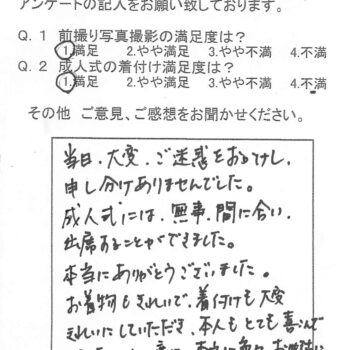 アンケートの記入をお願い致しております。
Q.1 前撮り写真撮影の満足度は?
1.満足 2.やや満足 3.やや不満 4.不満
Q.2 成人式の着付け満足度は?
1.満足 2.やや満足 3.やや不満 4.不満
その他 ご意見、ご感想をお聞かせください。
当日、大変、ご迷惑をおかけし、
申し分けありませんでした。
成人式には、無事、間に合い、
出席することができました。
本当にありがとうございました。
お着物もきれいで、着付けも大変
きれいにしていただき、本人もとても喜んで